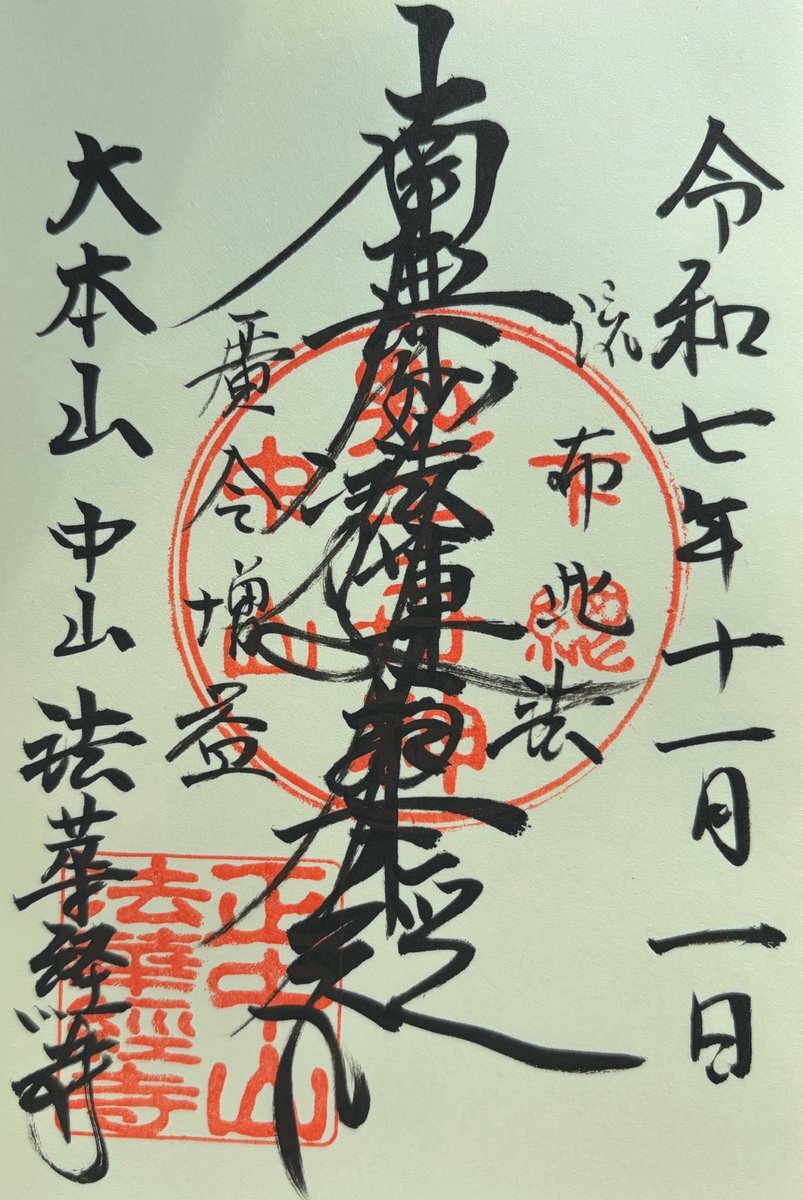 令和七年十一月一日
流布此法
南無妙法蓮華経
廣令増益
大本山 中山 法華経寺
下總
中山
正中山
法華經寺